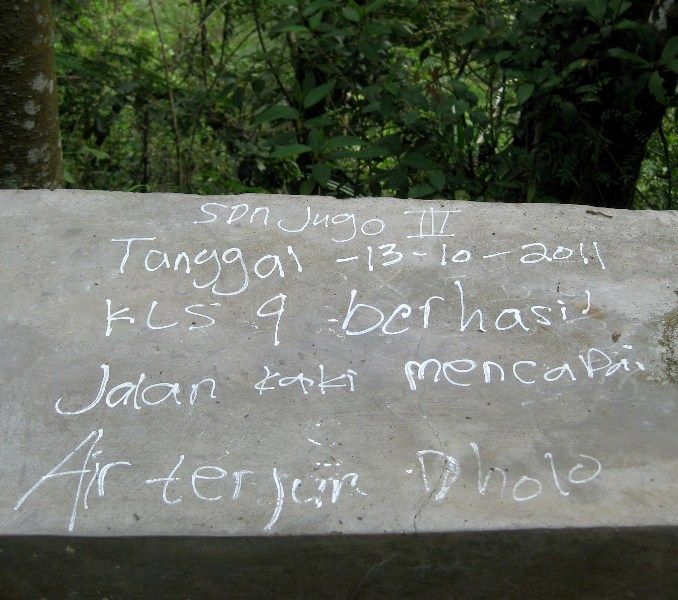 SDN Jugo III
Tanggal -13-10-2011
KLS 9 berhasil
Jalan kaki mencapai
Air terjun Dholo